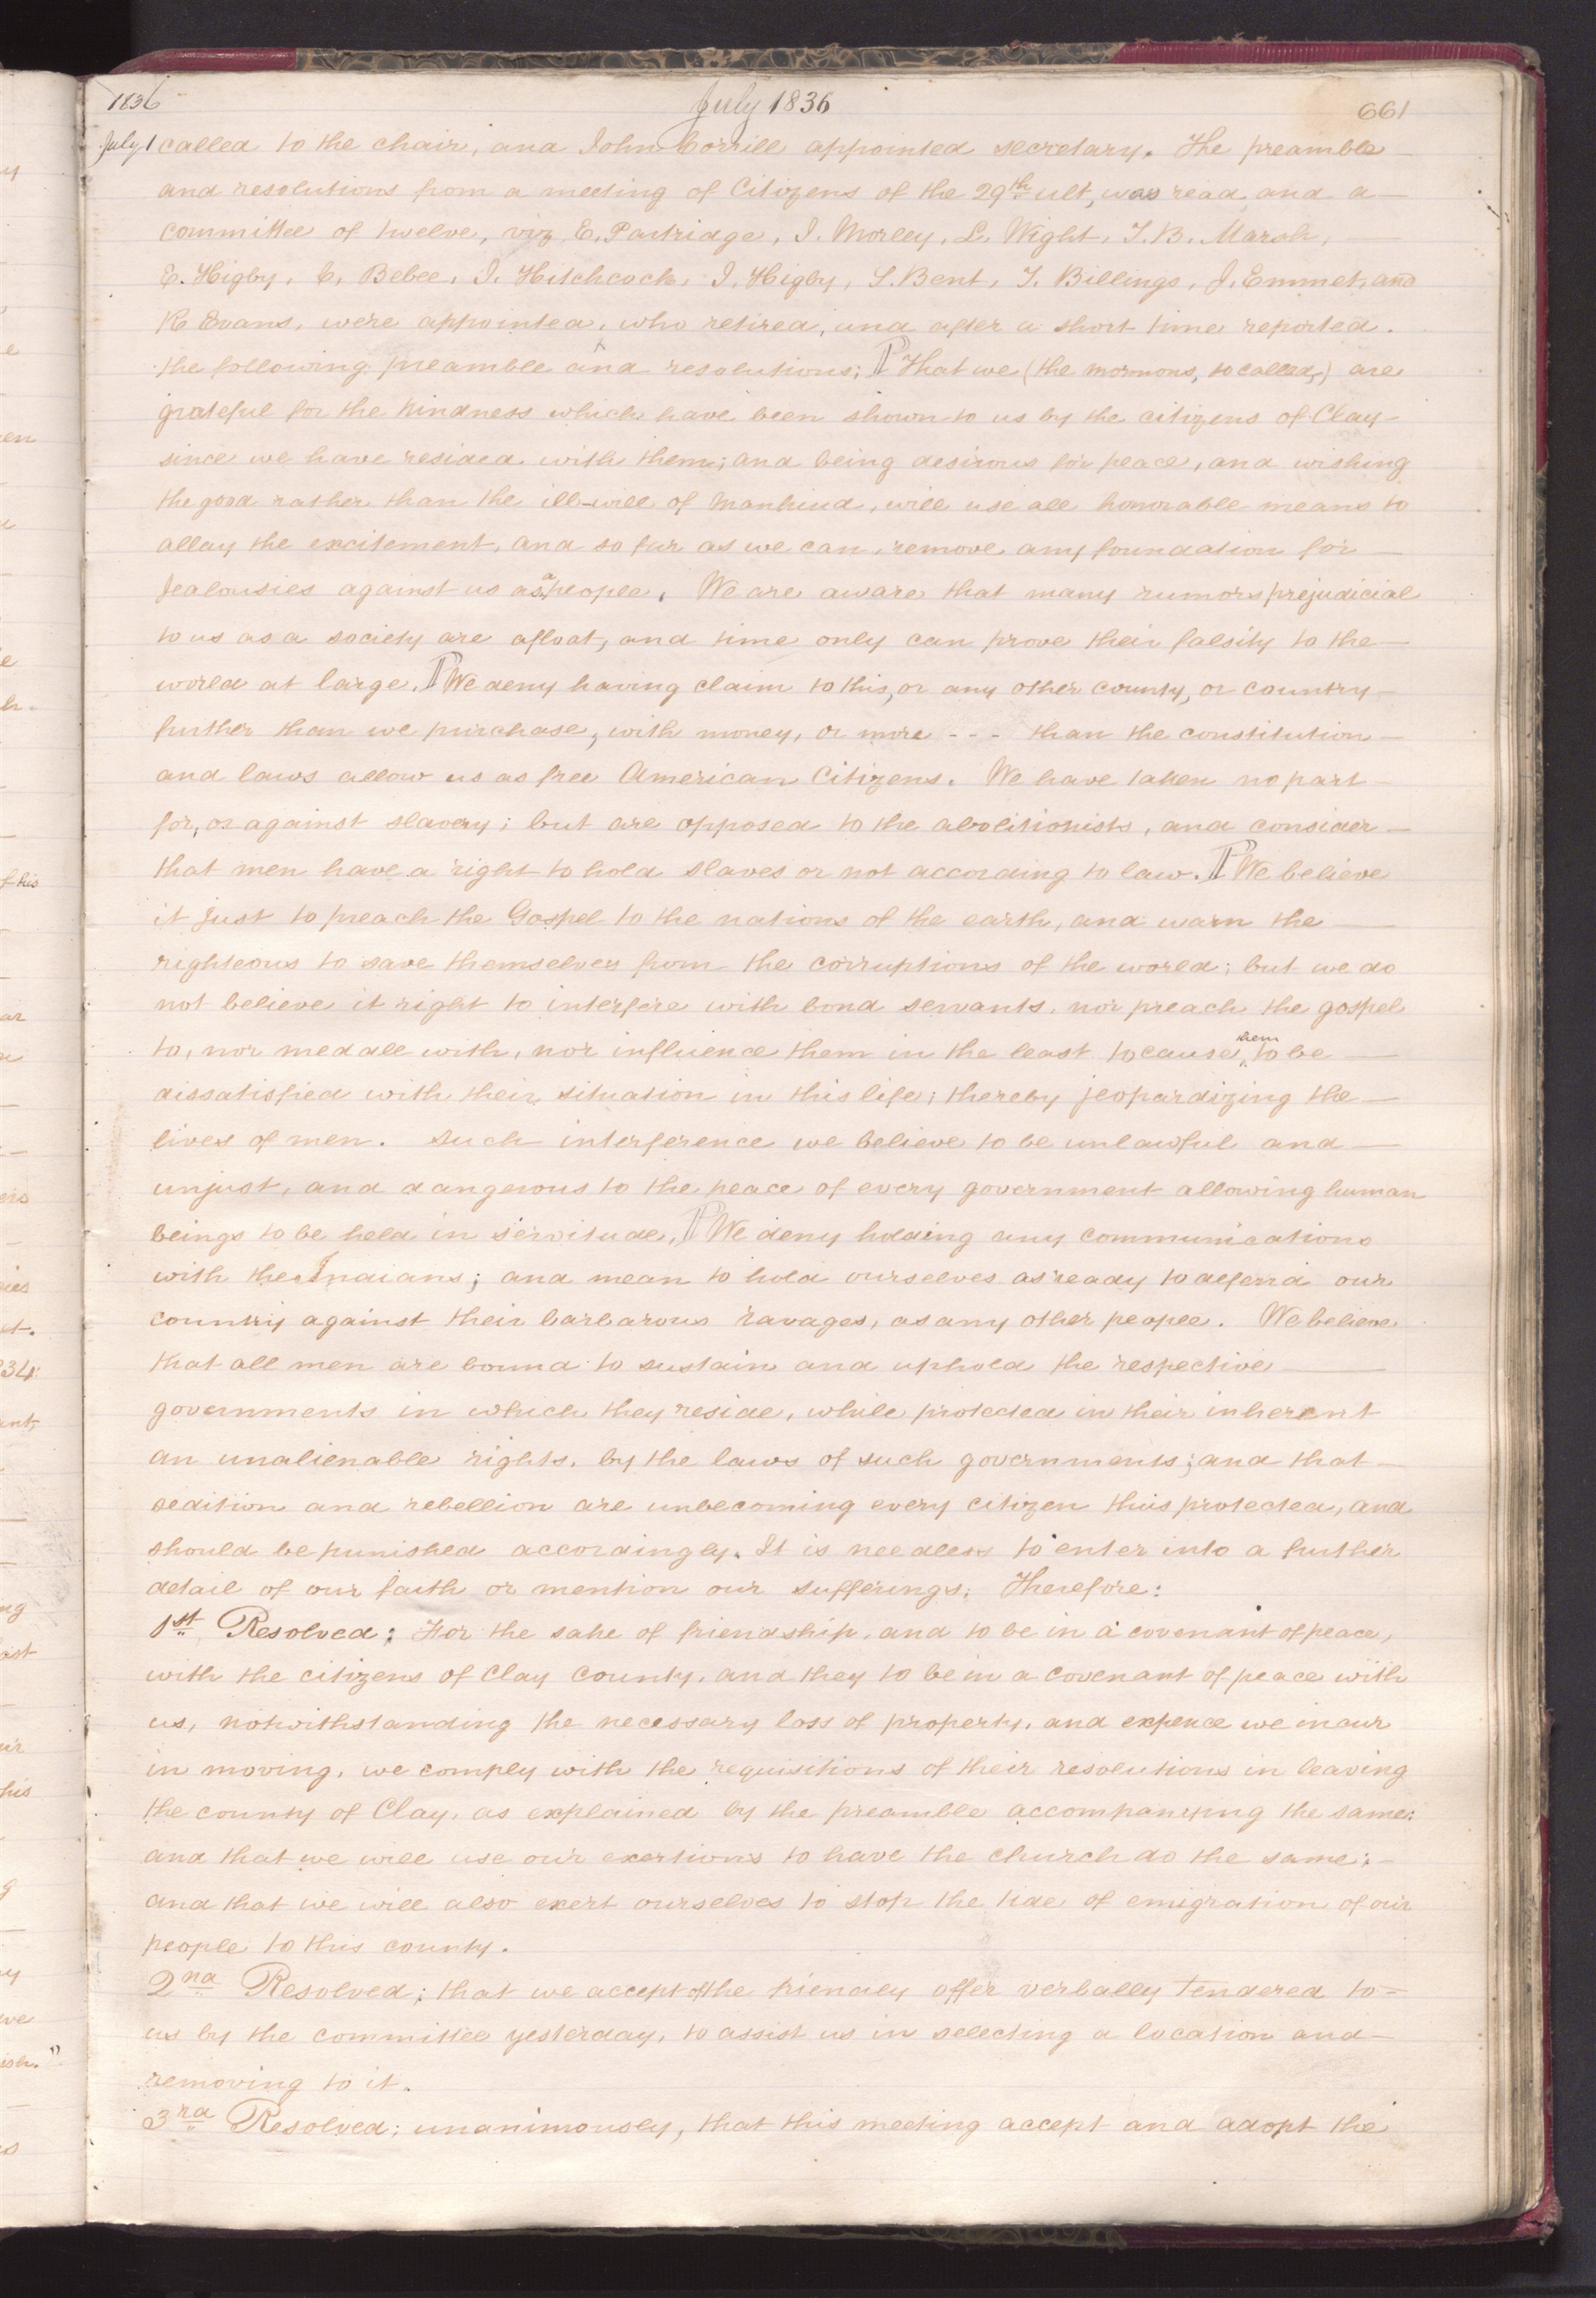 1836 July 1836 661
July 1 called to the chair, and John Corrill appointed secretary. The preamble
and resolutions from a meeting of Citizens of the 29th ult, was read, and a
committee of twelve, viz E. Partridge, I. Morley, L. Wight, T. B. Marsh,
E. Higby, C. Bebee, I. Hitchcock, I. Higby, S. Bent, T. Billings, J. Emmet, and
R. Evans, were appointed, who retired, and after a short time reported.
the following preamble and resolutions; ¶ That we (the mormons, so called,) are
grateful for the kindness which have been shown to us by the citizens of Clay
since we have resided with them; and being desirous for peace, and wishing
the good rather than the ill-will of mankind, will use all honorable means to
allay the excitement, and so far as we can, remove any foundation for
Jealousies against us as a people. We are aware that many rumors prejudicial
to us as a society are afloat, and time only can prove their falsity to the
world at large. ¶ We deny having claim to this, or any other county, or country
further than we purchase, with money, or more - - - than the constitution
and laws allow us as free American Citizens. We have taken no part
for, or against slavery; but are opposed to the abolitionists, and consider
that men have a right to hold slaves or not according to law. ¶ We believe
it just to preach the Gospel to the nations of the earth, and warn the
righteous to save themselves from the corruptions of the world; but we do
not believe it right to interfere with bond servants, nor preach the gospel
to, nor meddle with, nor influence them in the least to cause them to be
dissatisfied with their situation in this life; thereby jeopardizing the
lives of men. Such interference we believe to be unlawful and
unjust, and dangerous to the peace of every government allowing human
beings to be held in servitude. ¶ We deny holding any communications
with the Indians; and mean to hold ourselves as ready to defend our
country against their barbarous ravages, as any other people. We believe
that all men are bound to sustain and uphold the respective
governments in which they reside, while protected in their inherent
an unalienable rights, by the laws of such governments; and that
sedition and rebellion are unbecoming every citizen thus protected, and
should be punished accordingly. It is needless to enter into a further
detail of our faith or mention our sufferings; Therefore:
1st Resolved; For the sake of friendship, and to be in a covenant of peace,
with the citizens of Clay County, and they to be in a covenant of peace with
us, notwithstanding the necessary loss of property, and expence we incur
in moving, we comply with the requisitions of their resolutions in leaving
the county of Clay, as explained by the preamble accompanying the same;
and that we will use our exertions to have the church do the same;
and that we will also exert ourselves to stop the tide of emigration of our
people to this county.
2nd Resolved; that we accept of the friendly offer verbally tendered to
us by the committee yesterday, to assist us in selecting a location and
removing to it.
3rd Resolved; unanimously, that this meeting accept and adopt the